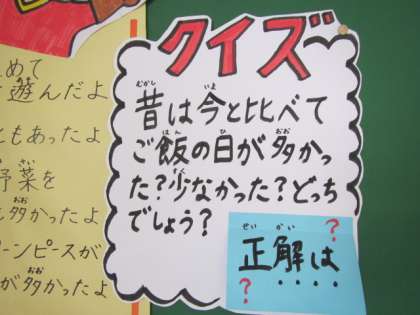 めて
遊んだよ
ともあったよ
野菜を
多かったよ
ーンピースが
が多かったよ
クイズ
昔は今と比べて
ご飯の日が多かっ
た?少なかった?どっち
でしょう?
正解は
?
?
・・・・